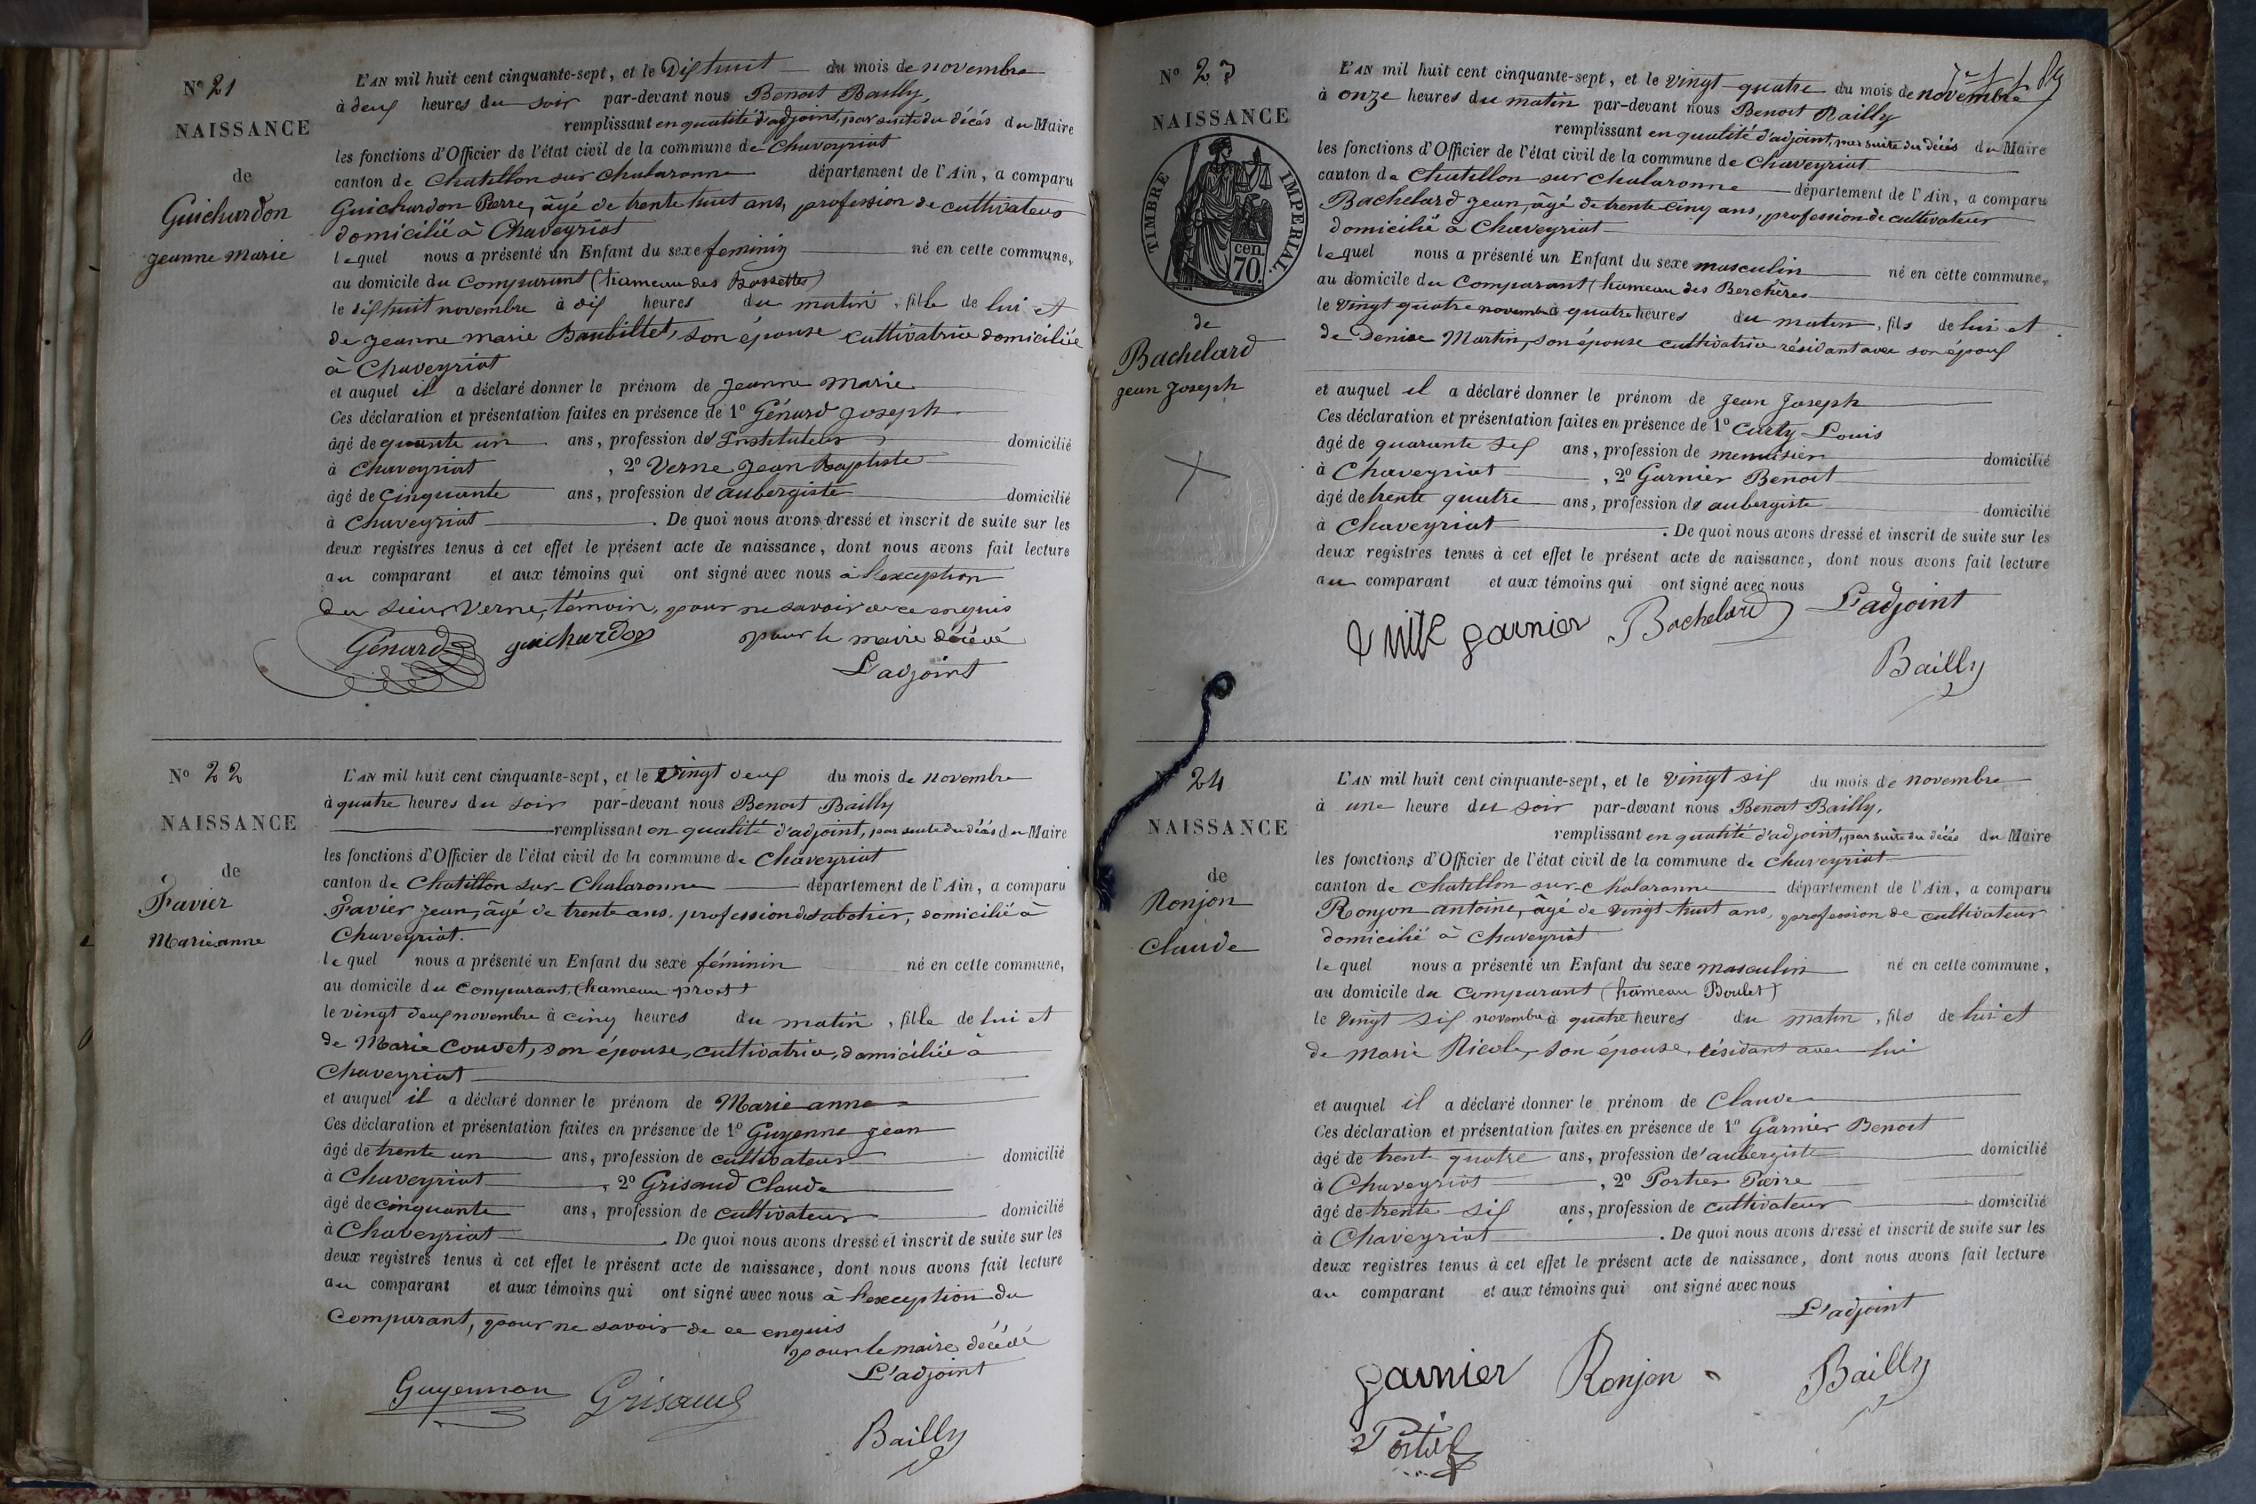 N° 21
NAISSANCE
de
Guichardon
Jeanne Marie
L'AN mil huit cent cinquante-sept, et le dix huit du mois de novembre
à deux heures du soir par-devant nous Benoit Bailly,
remplissant en qualité d'adjoint, par suite du décès du Maire
les fonctions d'Officier de l'état civil de la commune de Chaveyriat
canton de Chatillon sur Chalaronne département de l'Ain, a comparu
Guichardon Pierre, âgé de trente huit ans, profession de cultivateur
domicilié à Chaveyriat
lequel nous a présenté un Enfant du sexe feminin né en cette commune,
au domicile du comparant (hameau des Bassettes)
le dix huit novembre à dix heures du matin, fille de lui et
de Jeanne Marie Baubillet, son épouse cultivatrice domiciliée
à Chaveyriat
et auquel il a déclaré donner le prénom de Jeanne Marie
Ces déclaration et présentation faites en présence de 1° Génard Joseph
âgé de quarante un ans, profession d'Instituteur, domicilié
à Chaveyriat, 2° Verne Jean Baptiste
âgé de cinquante ans, profession d'aubergiste domicilié
à Chaveyriat. De quoi nous avons dressé et inscrit de suite sur les
deux registres tenus à cet effet le présent acte de naissance, dont nous avons fait lecture
au comparant et aux témoins qui ont signé avec nous à l'exception
du sieur Verne, témoin, pour ne savoir de ce enquis
Génard guichardon pour le maire décédé
L'adjoint
N° 22
NAISSANCE
de
Favier
Marie anne
L'AN mil huit cent cinquante-sept, et le vingt deux du mois de novembre
à quatre heures du soir par-devant nous Benoit Bailly
remplissant en qualité d'adjoint, par suite du décès du Maire
les fonctions d'Officier de l'état civil de la commune de Chaveyriat
canton de Chatillon sur Chalaronne département de l'Ain, a comparu
Favier Jean, âgé de trente ans, profession de sabotier, domicilié à
Chaveyriat.
lequel nous a présenté un Enfant du sexe féminin né en cette commune,
au domicile du comparant, (hameau prost)
le vingt deux novembre à cinq heures du matin, fille de lui et
de Marie Couvet, son épouse, cultivatrice, domiciliée à
Chaveyriat
et auquel il a déclaré donner le prénom de Marie anne
Ces déclaration et présentation faites en présence de 1° Guyenne Jean
âgé de trente un ans, profession de cultivateur domicilié
à Chaveyriat, 2° Grisaud Claude
âgé de cinquante ans, profession de cultivateur domicilié
à Chaveyriat. De quoi nous avons dressé et inscrit de suite sur les
deux registres tenus à cet effet le présent acte de naissance, dont nous avons fait lecture
au comparant et aux témoins qui ont signé avec nous à l'exception du
comparant, pour ne savoir de ce enquis
pour le maire décédé
L'adjoint
Guyennon Grisaud
Bailly
N° 23
NAISSANCE
TIMBRE IMPERIAL.
cen.
70.
de
Bachelard
Jean Joseph
L'AN mil huit cent cinquante-sept, et le vingt quatre du mois de novembre
à onze heures du matin par-devant nous Benoit Bailly
remplissant en qualité d'adjoint, par suite du décès du Maire
les fonctions d'Officier de l'état civil de la commune de Chaveyriat
canton de Chatillon sur Chalaronne département de l'Ain, a comparu
Bachelard Jean, âgé de trente cinq ans, profession de cultivateur
domicilié à Chaveyriat
lequel nous a présenté un Enfant du sexe masculin né en cette commune,
au domicile du comparant (hameau des Berchères
le vingt quatre novembre à quatre heures du matin, fils de lui et
de Denise Martin, son épouse cultivatrice résidant avec son époux
et auquel il a déclaré donner le prénom de Jean Joseph
Ces déclaration et présentation faites en présence de 1° Curty Louis
âgé de quarante six ans, profession de menuisier domicilié
à Chaveyriat, 2° Garnier Benoit
âgé de trente quatre ans, profession d'aubergiste domicilié
à Chaveyriat. De quoi nous avons dressé et inscrit de suite sur les
deux registres tenus à cet effet le présent acte de naissance, dont nous avons fait lecture
au comparant et aux témoins qui ont signé avec nous
garnier Bachelard L'adjoint
Bailly
24
NAISSANCE
de
Ronjon
Claude
L'AN mil huit cent cinquante-sept, et le vingt six du mois de novembre
à une heure du soir par-devant nous Benoit Bailly,
remplissant en qualité d'adjoint, par suite du décès du Maire
les fonctions d'Officier de l'état civil de la commune de Chaveyriat
canton de Chatillon sur Chalaronne département de l'Ain, a comparu
Ronjon antoine, âgé de vingt huit ans, profession de cultivateur
domicilié à Chaveyriat
lequel nous a présenté un Enfant du sexe masculin né en cette commune,
au domicile du comparant (hameau Boulet)
le vingt six novembre à quatre heures du matin, fils de lui et
de Marie Nicole, son épouse, résidant avec lui
et auquel il a déclaré donner le prénom de Claude
Ces déclaration et présentation faites en présence de 1° Garnier Benoit
âgé de trente quatre ans, profession d'aubergiste domicilié
à Chaveyriat, 2° Portier Pierre
âgé de trente six ans, profession de cultivateur domicilié
à Chaveyriat. De quoi nous avons dressé et inscrit de suite sur les
deux registres tenus à cet effet le présent acte de naissance, dont nous avons fait lecture
au comparant et aux témoins qui ont signé avec nous
L'adjoint
garnier Ronjon Bailly